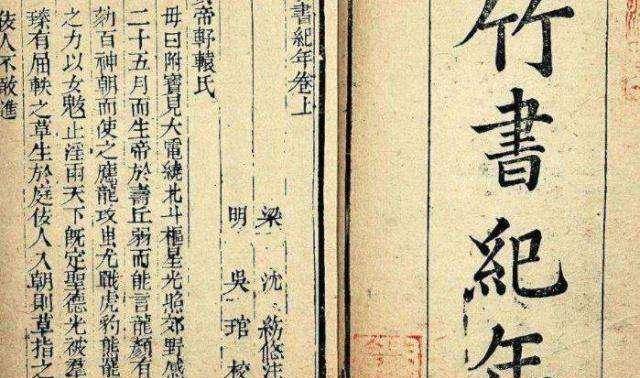 竹書紀年
書紀年卷上
梁 沈 約附注
明 吳 琯 校
帝軒轅氏
母曰附寶見大電繞北斗樞星光照郊野感
二十五月而生帝於壽丘弱而能言龍顏有
劾百神朝而使之應龍攻蚩尤戰虎豹熊羆
之力以女魃止淫雨天下既定聖德光被羣
臻有屈軼之草生於庭佞人入朝則草指之
佞人不敢進